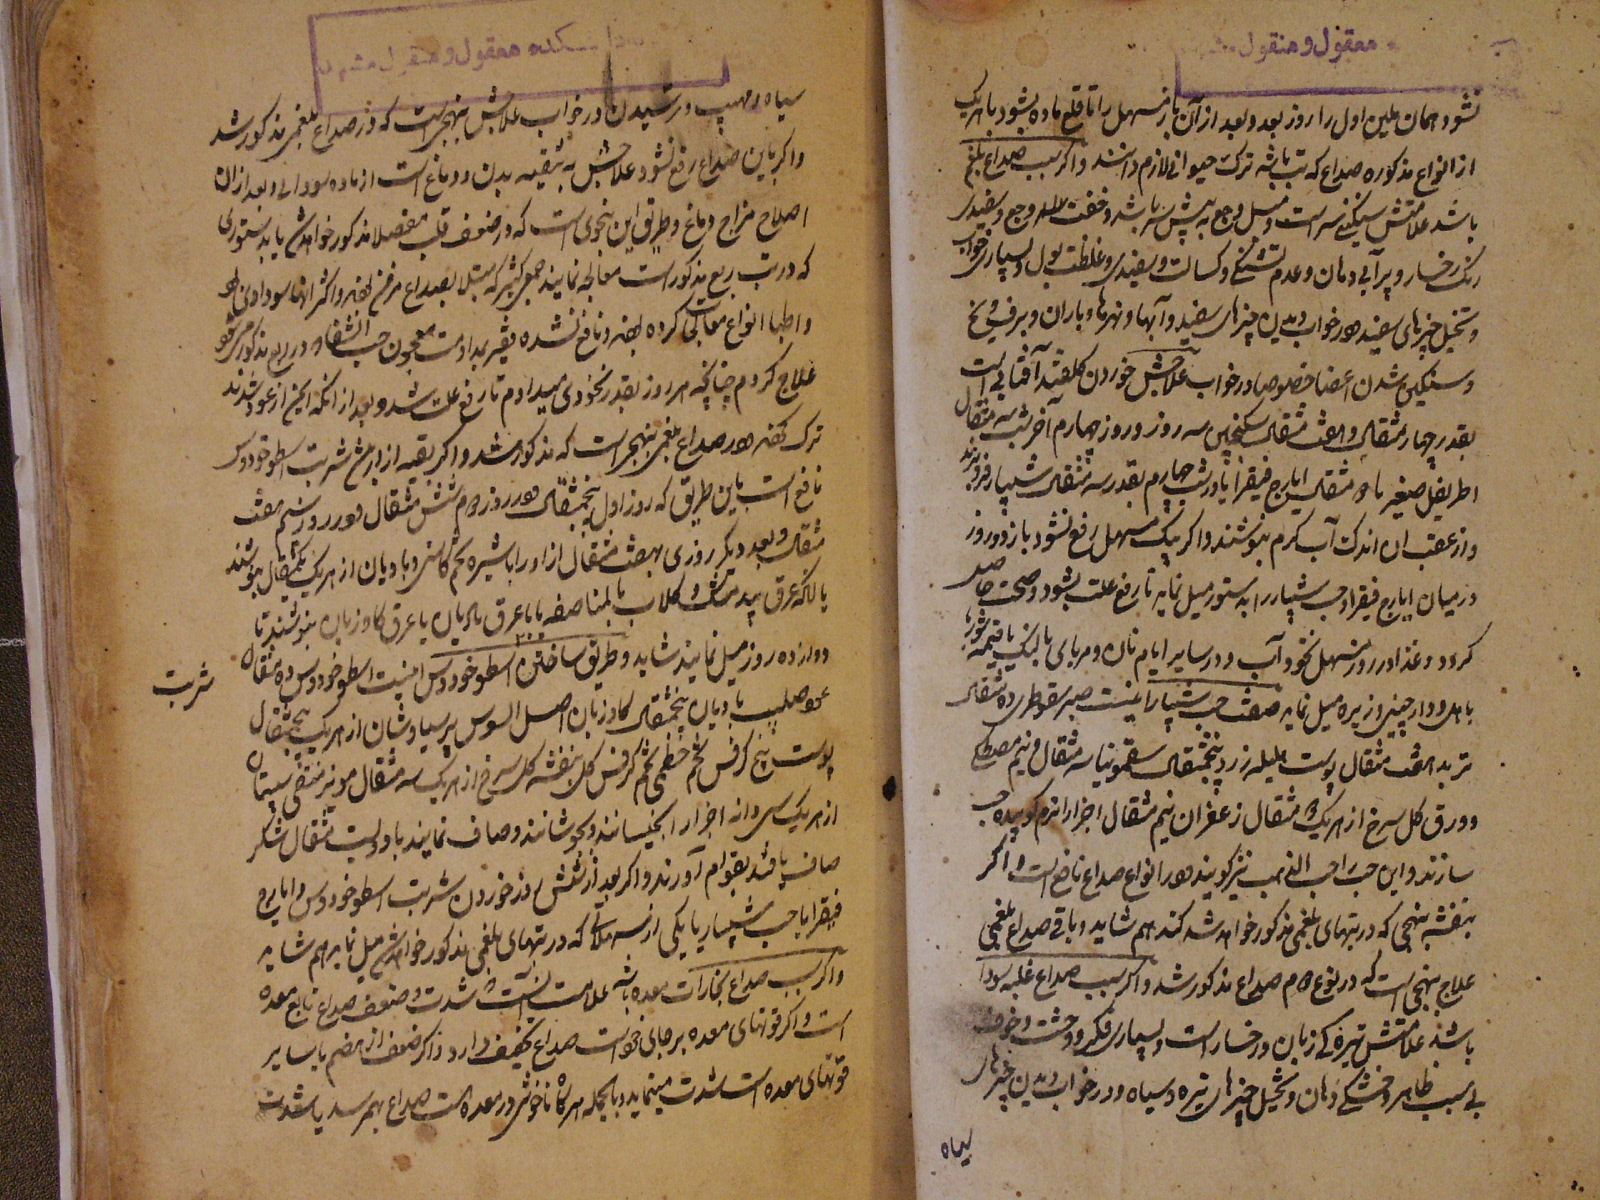 معقول و منقول
نشود همان ملین اول را روز بعد و بعد از آن باز مسهل را تا قلع ماده بشود با هر یک
از انواع مذکوره صداع که تب باشد ترک حیوانی لازم دانند و اگر سبب صداع بلغم
باشد علامتش سنگینی سر است و میل وجع به پیش سر باشد و خفت الم وجع و سفیدی
رنگ رخسار و پرآبی دهان و عدم تشنگی و کسالت و سفیدی و غلظت بول و بسیاری خواب
و تخیل چیزهای سفید و در خواب دیدن چیزهای سفید و آبها و نهرها و باران و برف و یخ
و سنگین شدن اعضا خصوصا در خواب علاجش خوردن گلقند آفتابی است
بقدر چهار مثقال و هفت مثقال سکنجبین سه روز و روز چهارم آخر شب سه مثقال
اطریفل صغیر با دو مثقال ایارج فیقرا یا در شب چهارم بقدر سه مثقال شبیار فرو برند
و از عقب آن اندک آب گرم بنوشند و اگر بیک مسهل رفع نشود باز دو روز
در میان ایارج فیقرا و حب شبیار را بدستور میل نماید تا رفع علت بشود و صحت حاصل
گردد و غذا در روز مسهل نخود آب و در سایر ایام نان و مربای بالنگ یا قیمه شوربا
با هل و دارچینی و زیره میل نماید صفت حب شبیار اینست صبر سقوطری ده مثقال
تربد هفت مثقال پوست هلیله زرد پنجمثقال سقمونیا سه مثقال و نیم مصطکی
و ورق گل سرخ از هر یک دو مثقال زعفران نیم مثقال اجزا را نرم کوبیده حب
سازند و این حب را حب الذهب نیز گویند و در انواع صداع نافع است و اگر
بنفشه بنهجی که در تبهای بلغمی مذکور خواهد شد کنند هم شاید و باقی صداع بلغمی
علاج بنهجی است که در نوع دوم صداع مذکور شد و اگر سبب صداع غلبه سودا
باشد علامتش تیرگی زبان و رخسار است و بسیاری فکر و وحشت و خوف
بی سبب ظاهر و خشکی دهان و تخیل چیزهای تیره و سیاه و در خواب دیدن چیزهای
سیاه
معقول و منقول
سیاه و مهیب و ترسیدن در خواب علاجش بنهجی است که در صداع بلغمی مذکور شد
و اگر باین صداع رفع نشود علاجش به تنقیه بدن و دماغ است از ماده سوداوی و بعد از ان
اصلاح مزاج دماغ و طریق این بنحوی است که در ضعف قلب مفصلا مذکور خواهد شد یا بدستوری
که در تب ربع مذکور است معالجه نمایند جمعی کثیر که مبتلا بصداع مزمن بودند و اکثر آنها سوداوی بود
و اطبا انواع معالجات کرده بودند و نافع نشده فقیر بمداومت معجون حب الشفا که در ربع مذکور می شود
علاج کردم چنانچه هر روز بقدر نخودی میدادم تا رفع علت شد و بعد از آنکه ایمن از عود شدند
ترک کردند و در صداع بلغمی بنهجی است که مذکور شد و اگر بقیه از آن باشد شربت اسطوخودوس
نافع است باین طریق که روز اول پنجمثقال و در روز دوم شش مثقال و در روز سیم هفت
مثقال و بعد دیگر روزی بهفت مثقال از او را با شیره تخم کاسنی و بادیان از هر یک یکمثقال بنوشند
یا آنکه عرق بیدمشک و گلاب بالمناصفه یا با عرق بادیان یا عرق گاوزبان بنوشند تا
دوازده روز میل نمایند شاید و طریق ساختن اسطوخودوس اینست اسطوخودوس ده مثقال
شربت
عود صلیب بادیان پنجمثقال گاوزبان اصل السوس پرسیاوشان از هر یک پنجمثقال
پوست بیخ کرفس تخم خطمی تخم کرفس گل بنفشه گل سرخ از هر یک سه مثقال مویز منقی سپستان
از هر یک سی دانه اجزا را بخیسانند و بجوشانند و صاف نمایند با دویست مثقال شکر
صاف یا قند بقوام آورند و اگر بعد از شش روز خوردن شربت اسطوخودوس ایارج
فیقرا یا حب شبیار یا یکی از مسهلاتی که در تبهای بلغمی مذکور خواهد شد میل نماید هم شاید
و اگر سبب صداع بخارات معده باشد علامت آن است شدت و ضعف صداع تابع معده
است و اگر قوتهای معده بر جای خود است صداع تخفیف دارد و اگر ضعف از هضم یا سایر
قوتهای معده است شدت مینماید و بالجمله هرگاه ناخوشی در معده است صداع بهمرسد یا شدت